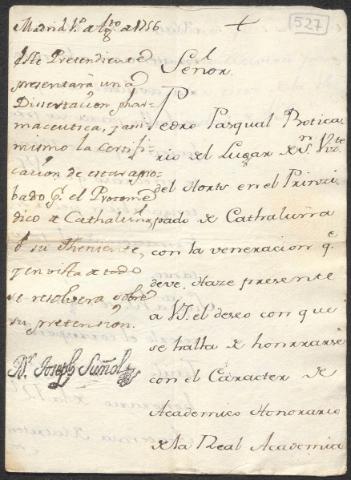 527
+
Madrid 1º. de Ag.to de 1756
Este Pretendiente
presentará una
Dissertacion, phar-
maceutica, y assi
mismo la Certifi-
cacion de estar apro-
bado p.r el Protome-
dico de Cathaluña,
ó su Theniente,
y en vista de todo
se resolverá sobre
su pretension.
D.r Joseph Suñol
Señor.
Pedro Pasqual Botica-
rio del Lugar de S.n Vic.te
del Horts en el Princi-
pado de Cathaluña
con la veneracion q.e
deve, Haze presente
a VS. el deseo con que
se halla de honrrarse
con el Caracter de
Academico Honorario
de la Real Academia